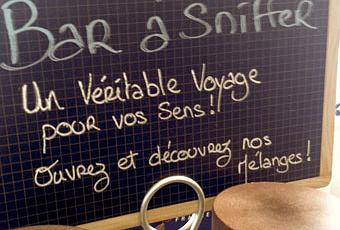 Bar à Sniffer
Un Véritable Voyage
pour vos Sens!
Ouvrez et découvrez nos
Mélanges!